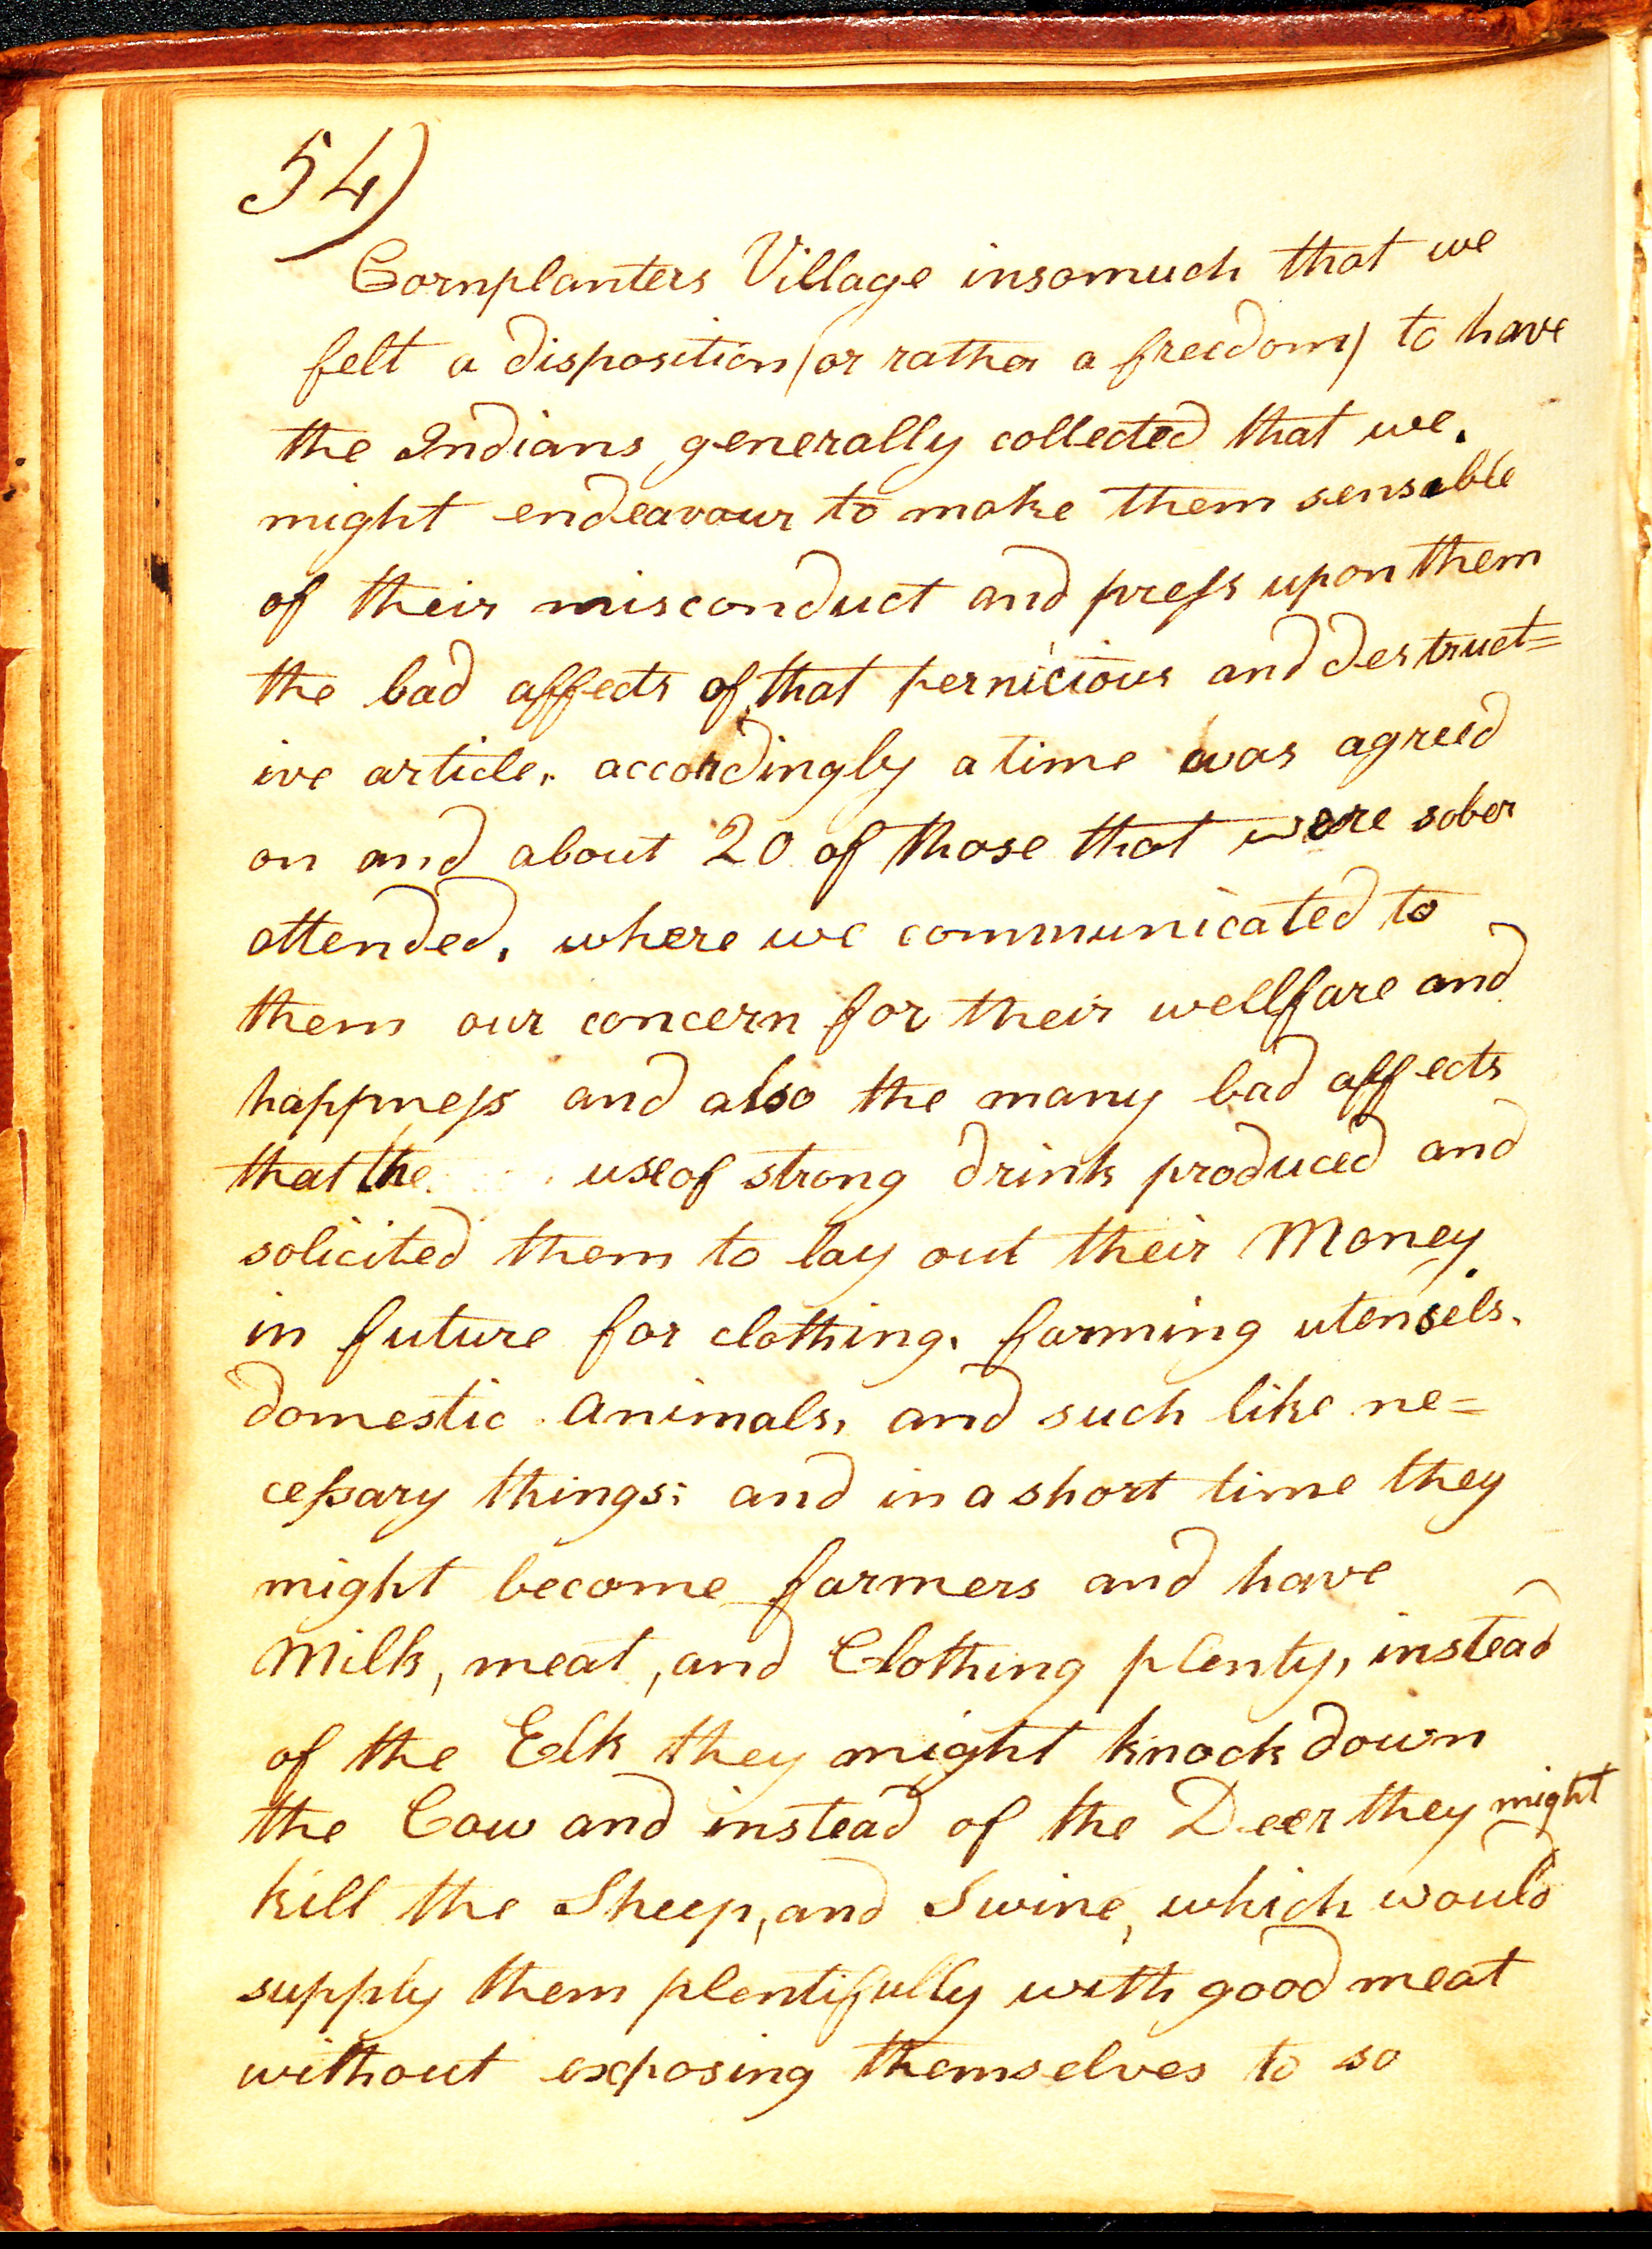 54)
Cornplanters Village insomuch that we
felt a disposition (or rather a freedom) to have
the Indians generally collected that we.
might endeavour to make them sensable
of their misconduct and press upon them
the bad affects of that pernicious and destruct=
ive article. accordingly a time was agreed
on and about 20 of those that were sober
attended. where we communicated to
them our concern for their wellfare and
happness and also the many bad affects
that the use of strong drink produced and
solicited them to lay out their Money
in future for clothing. farming utensels.
domestic animals, and such like ne=
cessary things; and in a short time they
might become farmers and have
Milk, meat, and Clothing plenty, instead
of the Elk they might knock down
the Cow and instead of the Deer they might
kill the Sheep, and Swine, which would
supply them plentifully with good meat
without exposing themselves to so